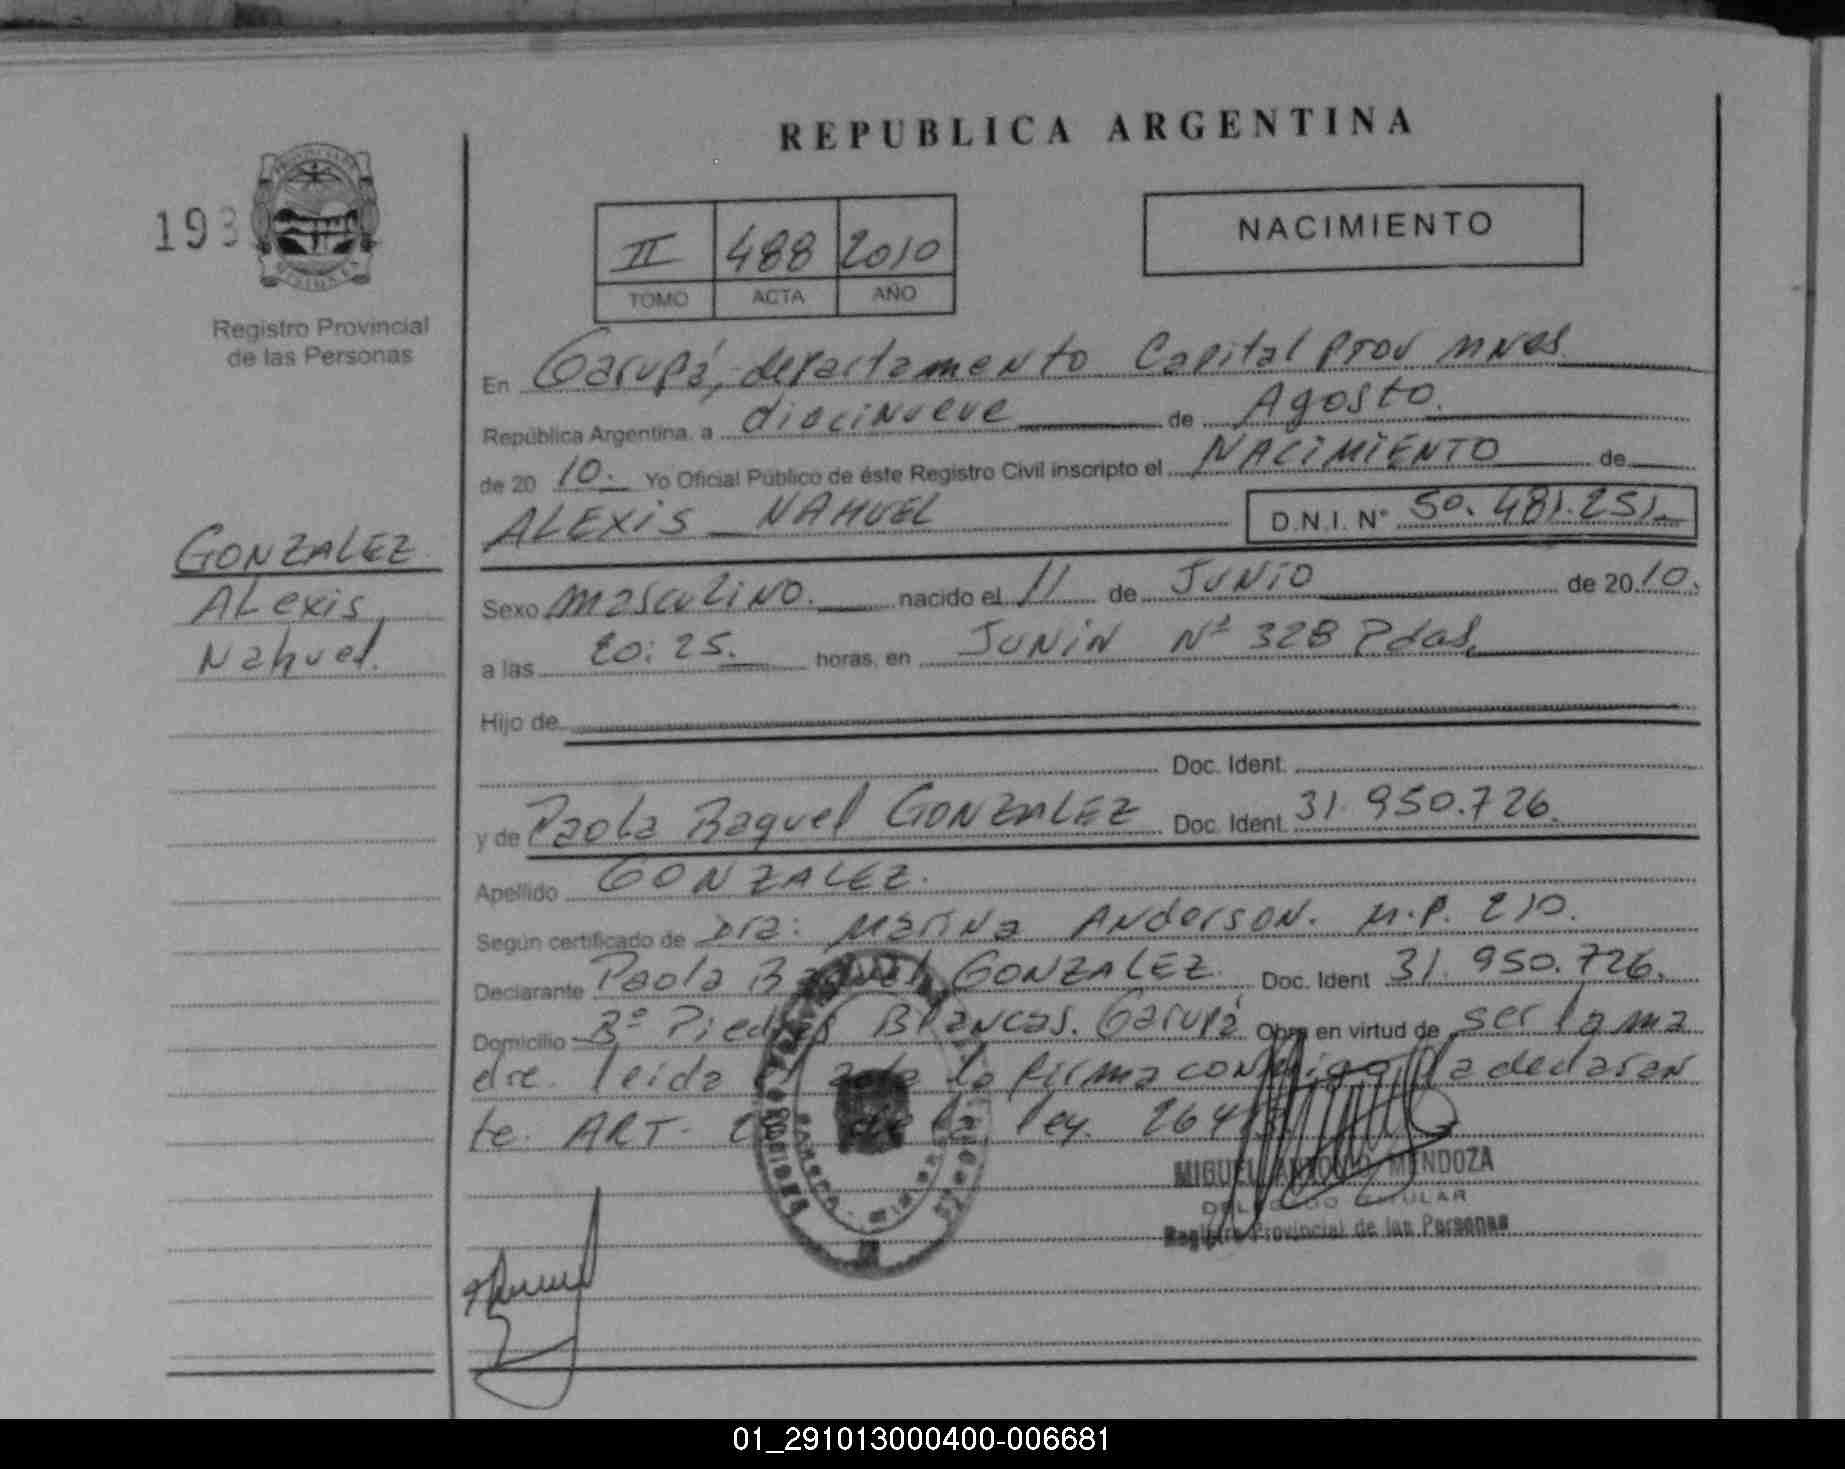 REPUBLICA ARGENTINA
193
PROVINCIA DE MISIONES
Registro Provincial
de las Personas
II 488 2010
TOMO ACTA AÑO
NACIMIENTO
En Garupá, departamento Capital Prov Mnes
República Argentina, a diecinueve de Agosto.
de 20 10. Yo Oficial Público de éste Registro Civil inscripto el NACIMIENTO de
ALEXIS NAHUEL D.N.I. N° 50.481.251
GONZALEZ
Alexis
Nahuel.
Sexo masculino. nacido el 11 de JUNIO de 2010.
a las 20:25. horas, en JUNIN Nº 328 Pdas.
Hijo de
Doc. Ident.
y de Paola Raquel GONZALEZ Doc. Ident. 31.950.726.
Apellido GONZALEZ.
Según certificado de Dra: Marina Anderson. M.P. 210.
Declarante Paola Raquel GONZALEZ Doc. Ident 31.950.726.
Domicilio Bº Piedras Blancas. Garupá Obra en virtud de ser la ma
dre. leida el acta la firma conmigo la declaran
te. ART. de la ley. 26413
MIGUEL ANTONIO MENDOZA
DELEGADO TITULAR
Registro Provincial de las Personas
01_291013000400-006681